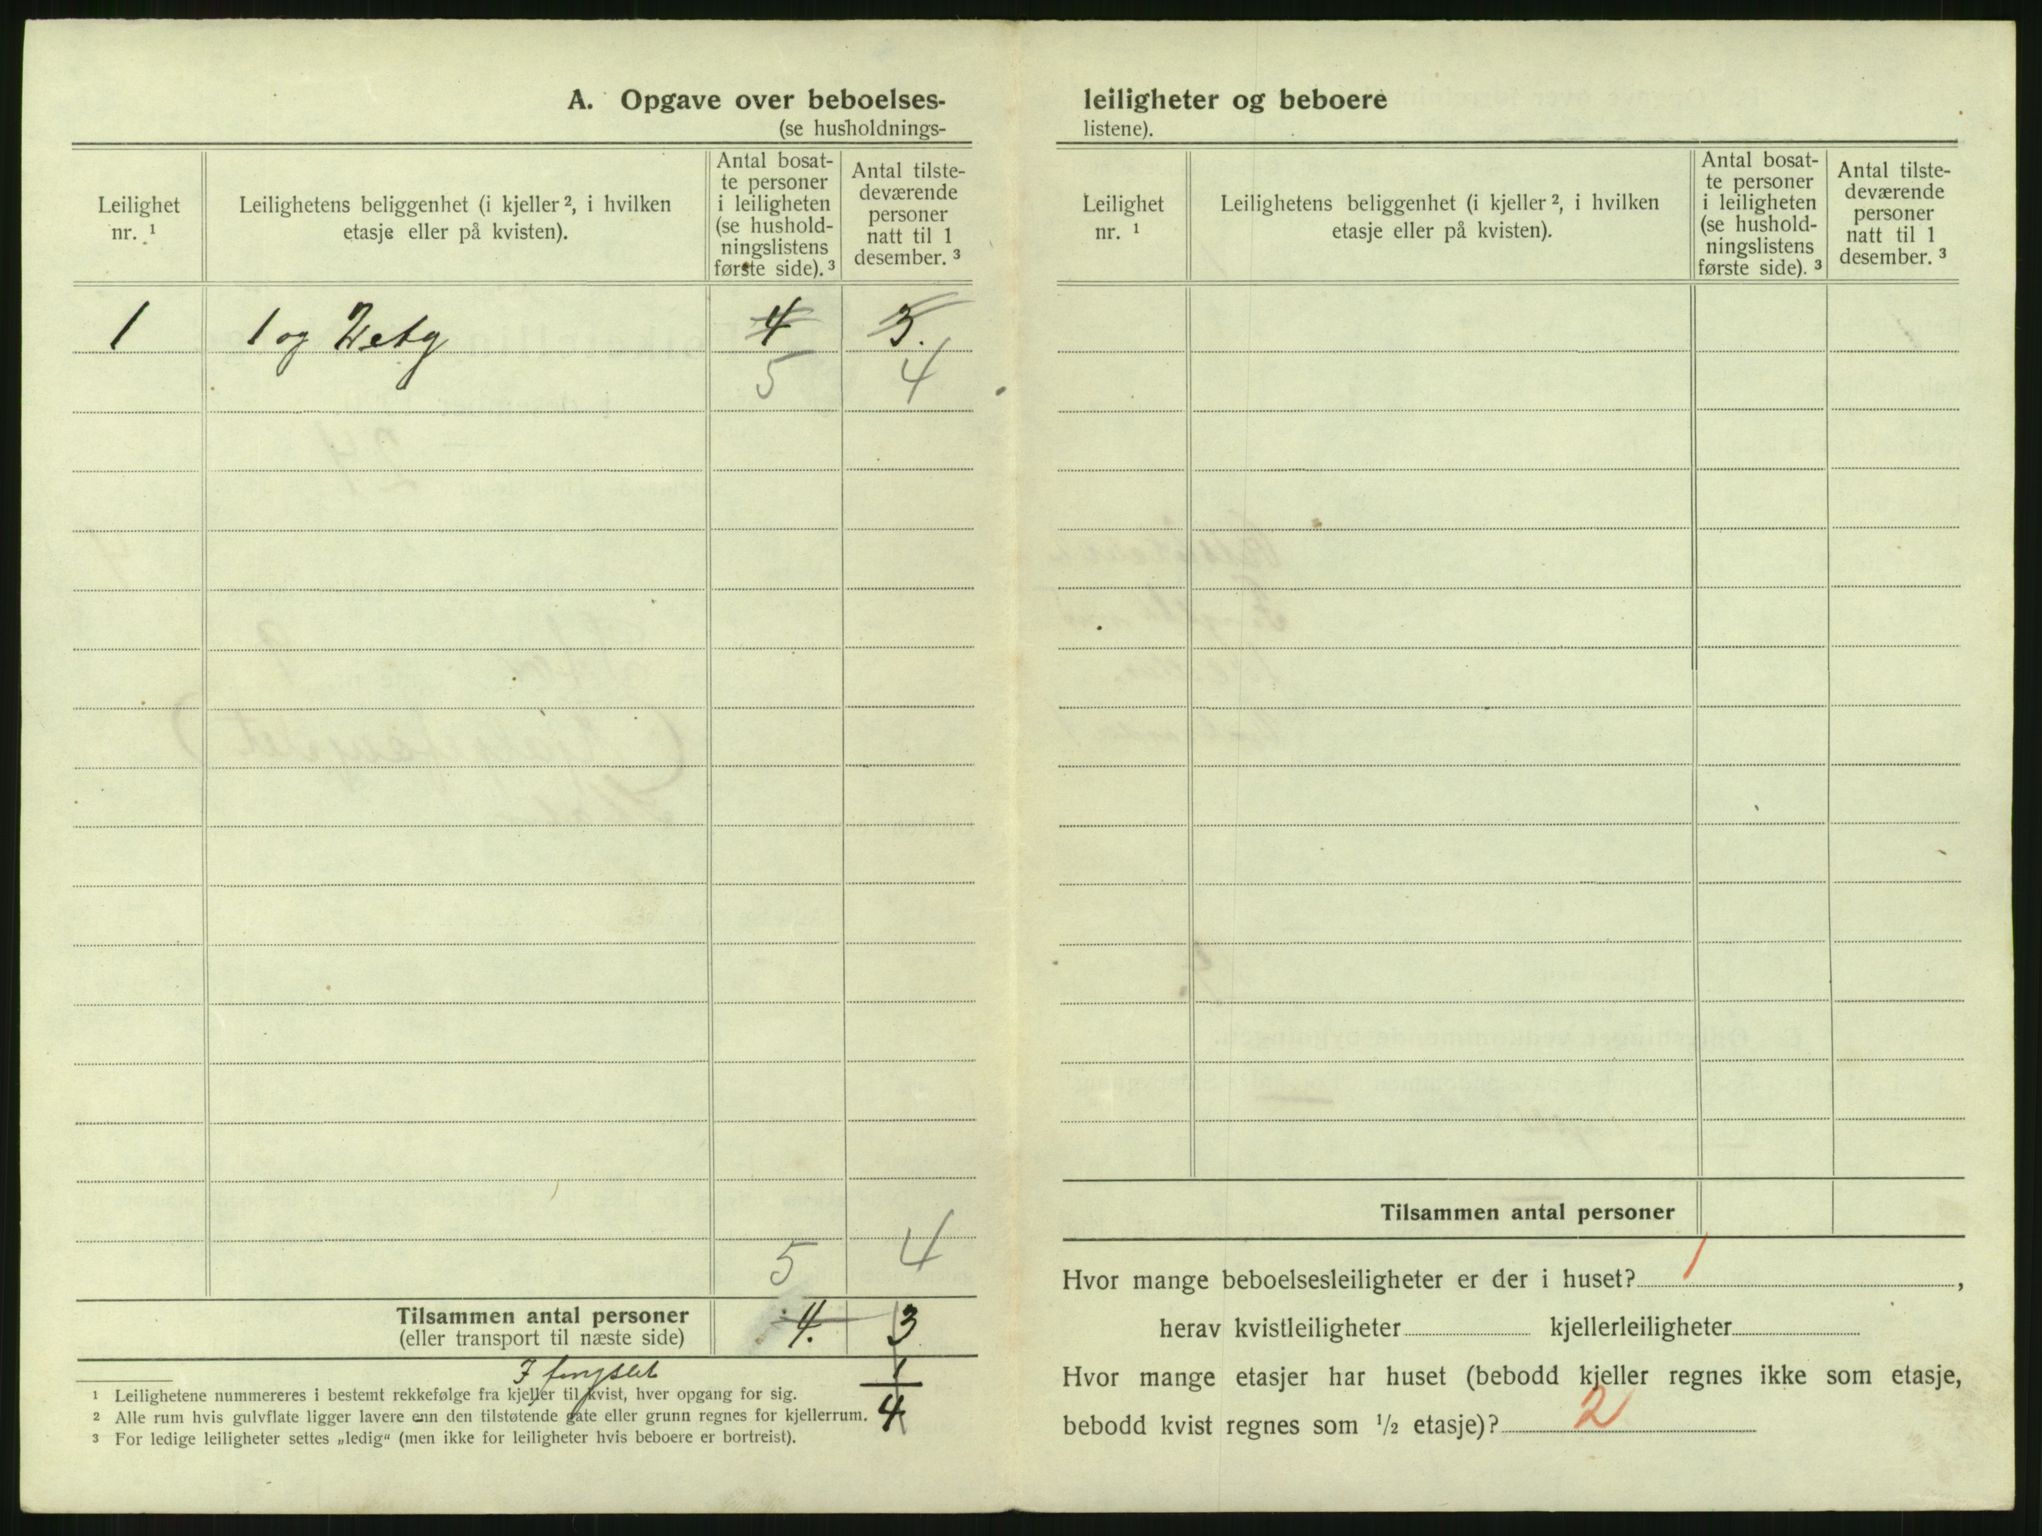 A. Opgave over beboelses-
(se husholdnings-
Leilighet
nr. 1
Leilighetens beliggenhet (i kjeller 2, i hvilken
etasje eller på kvisten).
Antal bosat-
te personer
i leiligheten
(se hushold-
ningslistens
første side). 3
Antal tilste-
deværende
personer
natt til 1
desember. 3
1 1 og 2 etg 4 3.
5 4
5 4
Tilsammen antal personer
(eller transport til næste side)
4. 3
I fengslet 1
4
1 Leilighetene nummereres i bestemt rekkefølge fra kjeller til kvist, hver opgang for sig.
2 Alle rum hvis gulvflate ligger lavere enn den tilstøtende gate eller grunn regnes for kjellerrum.
3 For ledige leiligheter settes „ledig“ (men ikke for leiligheter hvis beboere er bortreist).
leiligheter og beboere
listene).
Leilighet
nr. 1
Leilighetens beliggenhet (i kjeller 2, i hvilken
etasje eller på kvisten).
Antal bosat-
te personer
i leiligheten
(se hushold-
ningslistens
første side). 3
Antal tilste-
deværende
personer
natt til 1
desember. 3
Tilsammen antal personer
Hvor mange beboelsesleiligheter er der i huset? 1 ,
herav kvistleiligheter kjellerleiligheter
Hvor mange etasjer har huset (bebodd kjeller regnes ikke som etasje,
bebodd kvist regnes som 1/2 etasje)? 2